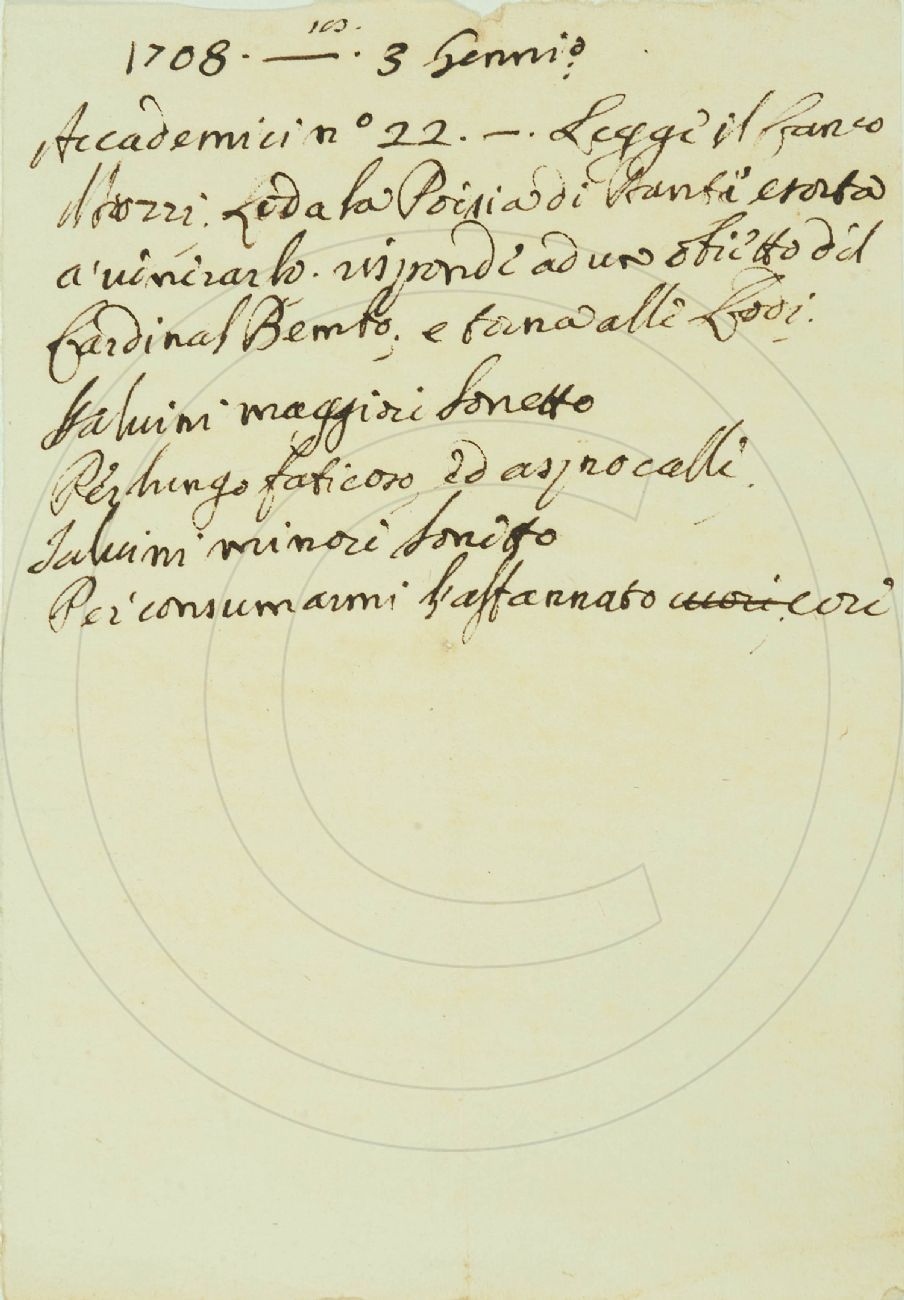 103.
1708. — . 3 Genni.o
Accademici n.o 22. — . Legge il Canco
Mozzi. Loda la Poesia di Dante esorta
a' venerarlo. risponde ad un obietto del
Cardinal Bembo; e torna alle Lodi.
Salvini maggiore Sonetto
Per lungo faticoso, ed aspro calle.
Salvini minore Sonetto
Per consumarmi l'affannato cuore core